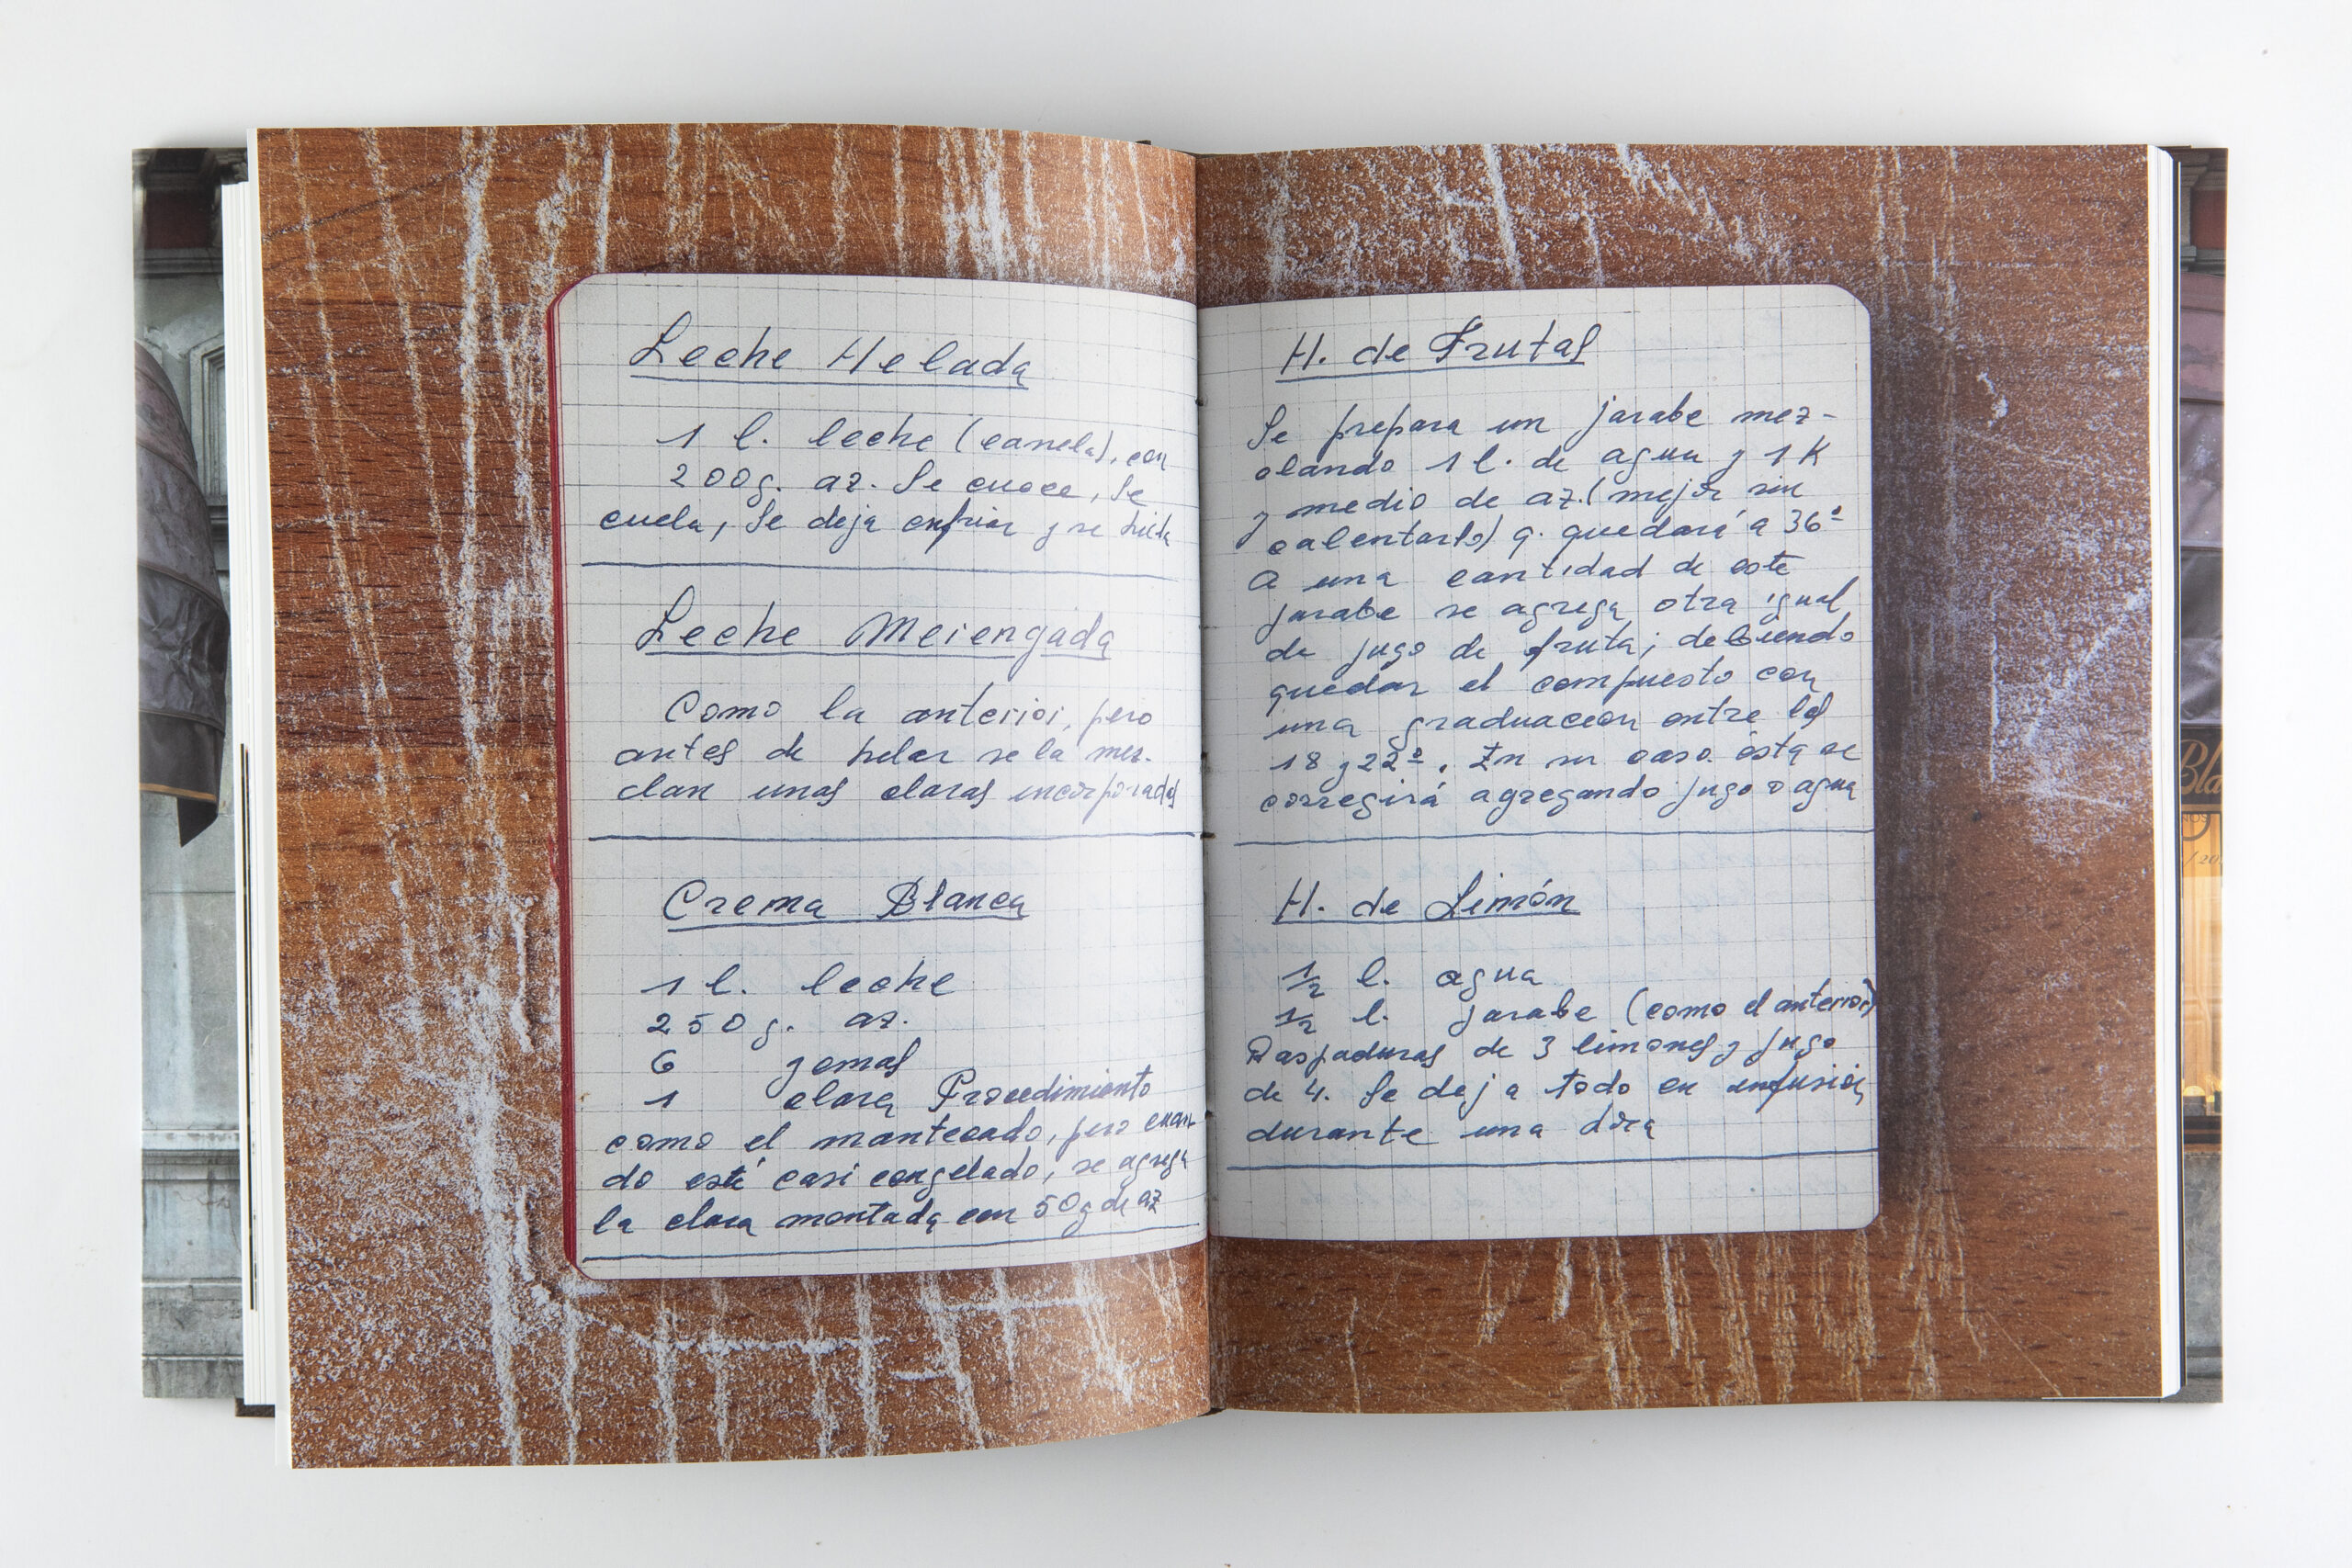 Leche Helada
1 l. leche (canela), con
200g. az. Se cuece, se
cuela, Se deja enfriar y se hiela
Leche Merengada
Como la anterior, pero
antes de helar se la mez-
clan unas claras incorporadas
Crema Blanca
1 l. leche
250 g. az.
6 yemas
1 clara Procedimiento
como el mantecado, pero cuan-
do esté casi congelado, se agrega
la clara montada con 50g de az
H. de Frutas
Se prepara un jarabe mez-
clando 1 l. de agua y 1 K
y medio de az. (mejor sin
calentarlo) q. quedará a 36º
A una cantidad de este
jarabe se agrega otra igual
de jugo de fruta; debiendo
quedar el compuesto con
una graduacion entre los
18 y 22º. En su caso ésta se
corregirá agregando jugo o agua
H. de Limón
1/2 l. agua
1/2 l. jarabe (como el anterior)
Raspaduras de 3 limones y jugo
de 4. Se deja todo en infusión
durante una hora
Bla